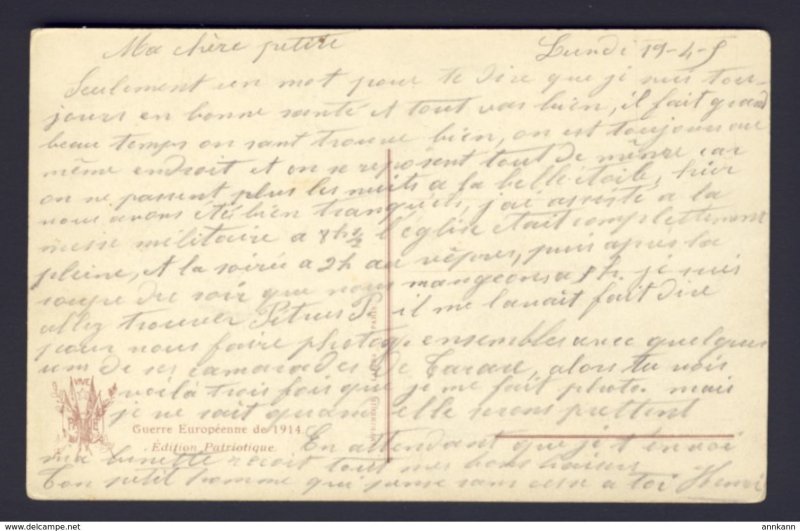 Ma chère petite Lundi 19-4-5
Seulement un mot pour te dire que je suis tou-
jours en bonne santé et tout vas bien, il fait grand
beau temps on sant trouve bien, on est toujours au
même endroit et on se reposent tout de même car
on ne passent plus les nuits a la belle étoile, hier
nous avons été bien tranquils, j'ai assisté a la
messe militaire a 8h½ l'église était complettement
pleine, et la soirée a 2h au vêpres, puis après la
soupe du soir que nous mangeons a 5h. je suis
allez trouver Pétrus P. il me l'avait fait dire
pour nous faire photog. ensembles avec quelques
uns de ses camarades de Tarare, alors tu vois
voilà trois fois que je me fait photo. mais
je ne sait quand elle serons prettent
Guerre Européenne de 1914
Édition Patriotique.
En attendant que je t'envoi
ma binette reçoit tous mes bons baisers
Ton petit homme qui pense sans cesse a toi Henri
annkann